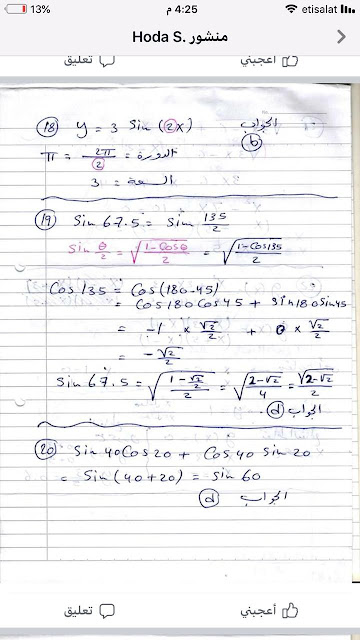 13% 4:25 م etisalat
منشور .Hoda S
أعجبني تعليق
18 y = 3 sin(2x) الجواب b
الدورة = 2π/2 = π
السعة = 3
19 sin 67.5 = sin 135/2
sin θ/2 = √((1-cosθ)/2) = √((1-cos135)/2)
cos 135 = cos(180-45)
= cos180 cos45 + sin180 sin45
= -1 × √2/2 + 0 × √2/2
= -√2/2
sin 67.5 = √((1-√2/2)/2) = √((2-√2)/4) = √(2-√2)/2
الجواب d
20 sin 40 cos 20 + cos 40 sin 20
= sin(40+20) = sin 60
الجواب d
أعجبني تعليق